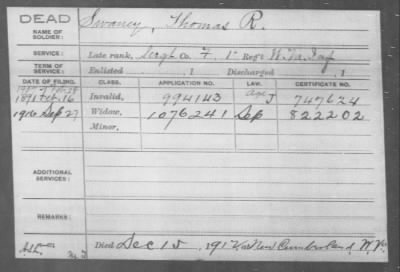 DEAD
NAME OF SOLDIER: Swaney, Thomas R.
SERVICE: Late rank, Sergt Co. F, 1st Regt W. Va. Inf
TERM OF SERVICE: Enlisted , 1 Discharged , 1
DATE OF FILING. CLASS. APPLICATION NO. LAW. CERTIFICATE NO.
1891 Feb. 16 Invalid, 994143 Age J 747624
1916 Sep 27 Widow, 1076241 Sep 822202
Minor,
ADDITIONAL SERVICES:
REMARKS:
Died Dec 15, 191 at New Cumberland, W. Va